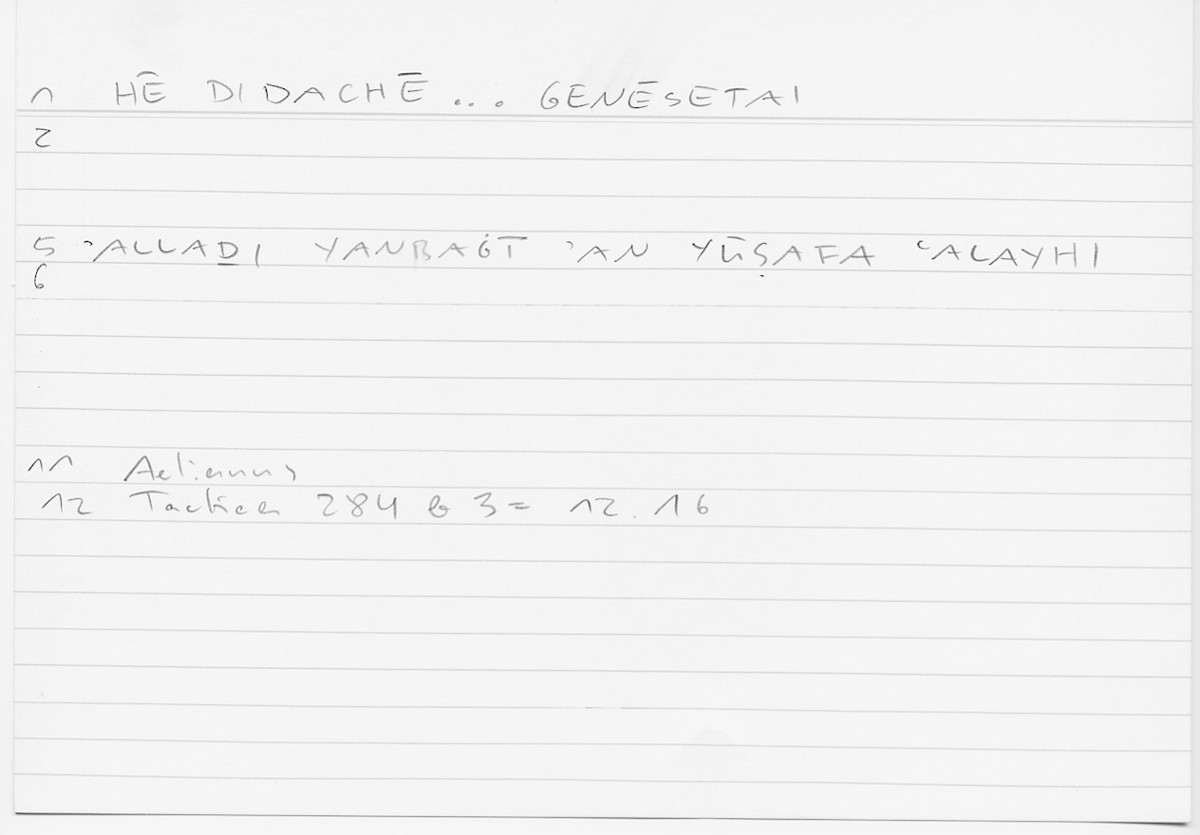 1 HĒ DIDACHĒ ... GENĒSETAI
2
5 ʾALLAḎI YANBAĠĪ ʾAN YŪṢAFA ʿALAYHI
6
11 Aelianus
12 Tactica 284 b 3 = 12.16